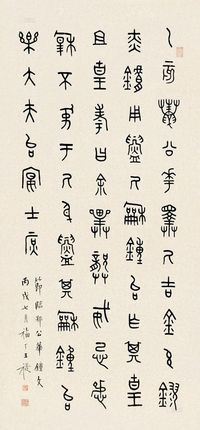 乙亥鼄公華擇厥吉金玄鏐
赤鏞用鑄厥龢鐘台乍其皇
且皇考曰余畢龏威忌淑
穆不彖于厥身鑄其龢鐘台
樂大夫台宴士庶
節臨邾公華鐘文
丙戌七月福厂王禔